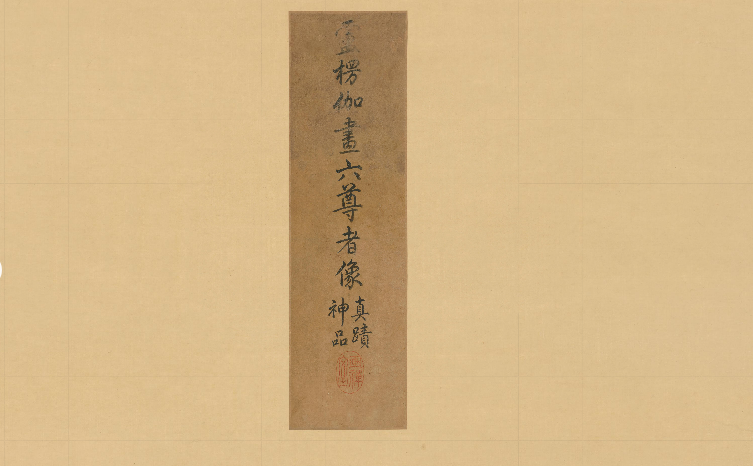 盧楞伽畫六尊者像
真蹟
神品